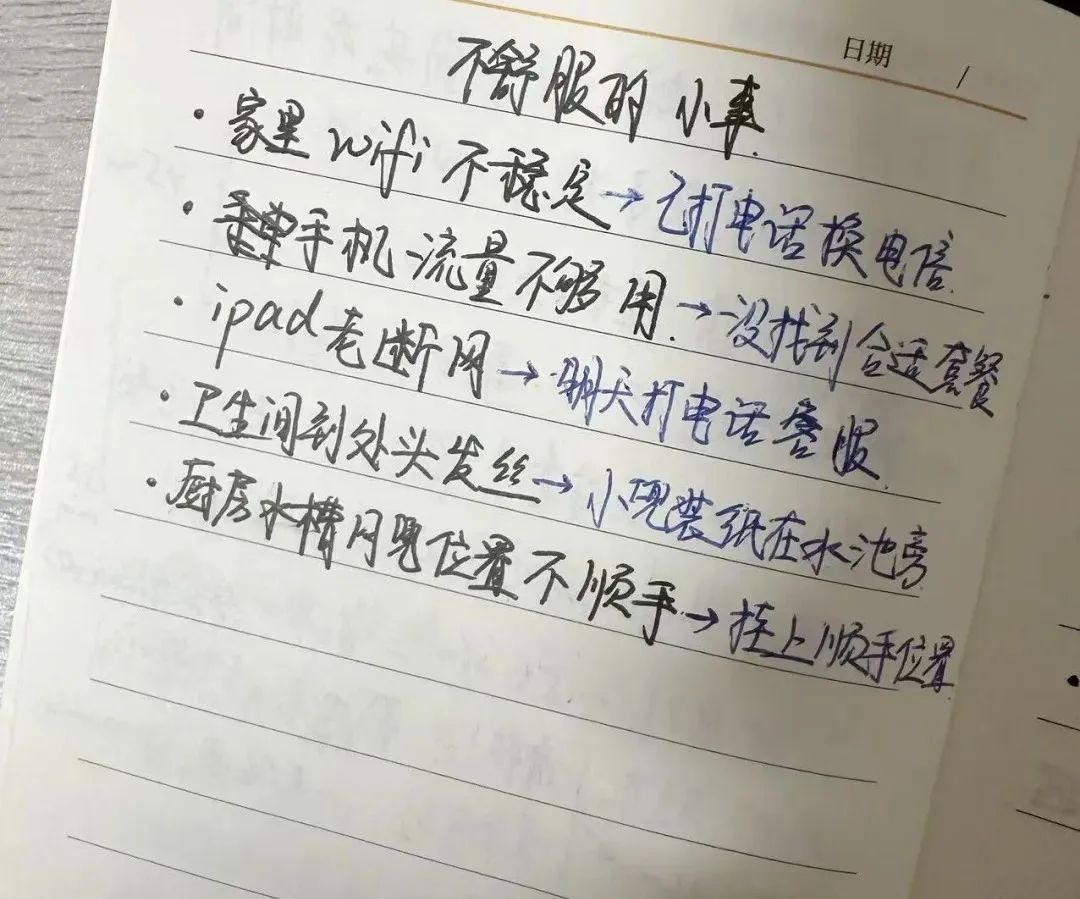 日期 /
不舒服的小事.
· 家里 wifi 不稳定→已打电话换电信.
· 手机流量不够用.→没找到合适套餐
· ipad老断网→明天打电话客服.
· 卫生间到处头发丝→小兜装纸在水池旁
· 厨房水槽网兜位置不顺手→挂上顺手位置.